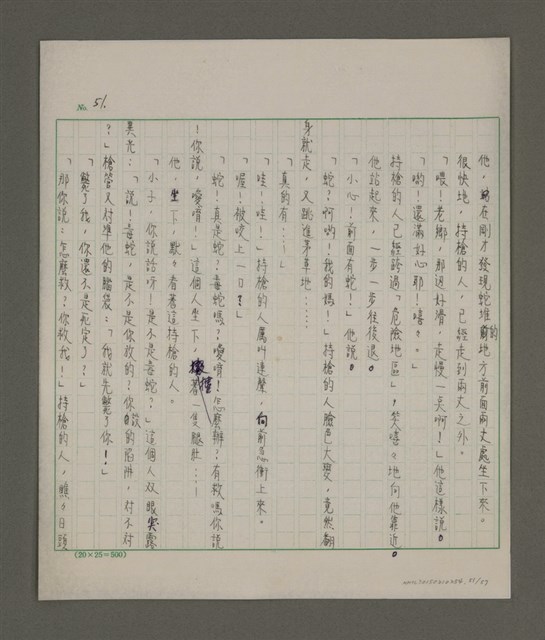 No. 51.
他，站在剛才發現蛇堆的地方前面兩丈處坐下來。
很快地，持槍的人，已經走到兩丈之外。
「喂！老鄉，那邊好滑，走慢一矣啊！」他這樣說。
「喲！還滿好心耶！嘻々。」
持槍的人已經跨過「危險地區」，笑嘻々地向他靠近。
他站起來，一步一步往後退。
「小心！前面有蛇！」他說。
「蛇？啊喲！我的媽！」持槍的人臉色大變，竟然翻
身就走，又跳進茅草地……
「真的有……！」
「哇！哇！」持槍的人厲叫連聲，向前面衝上來。
「喔！被咬上一口？」
「蛇！真是蛇？毒蛇嗎？噯唷！怎麼辦？有救嗎你說
！你說，噯唷！」這個人坐下，捶着一隻腿肚……！
他，坐下，默々看著這持槍的人。
「小子，你說話呀！是不是毒蛇？」這個人双眼突露
異光：「說！毒蛇，是不是你放的？你設的陷阱，对不对
？」槍管又对準他的腦袋：「我就先斃了你！」
「斃了我，你還不是死定了？」
「那你說：怎麼救？你救我！」持槍的人，
(20×25=500)